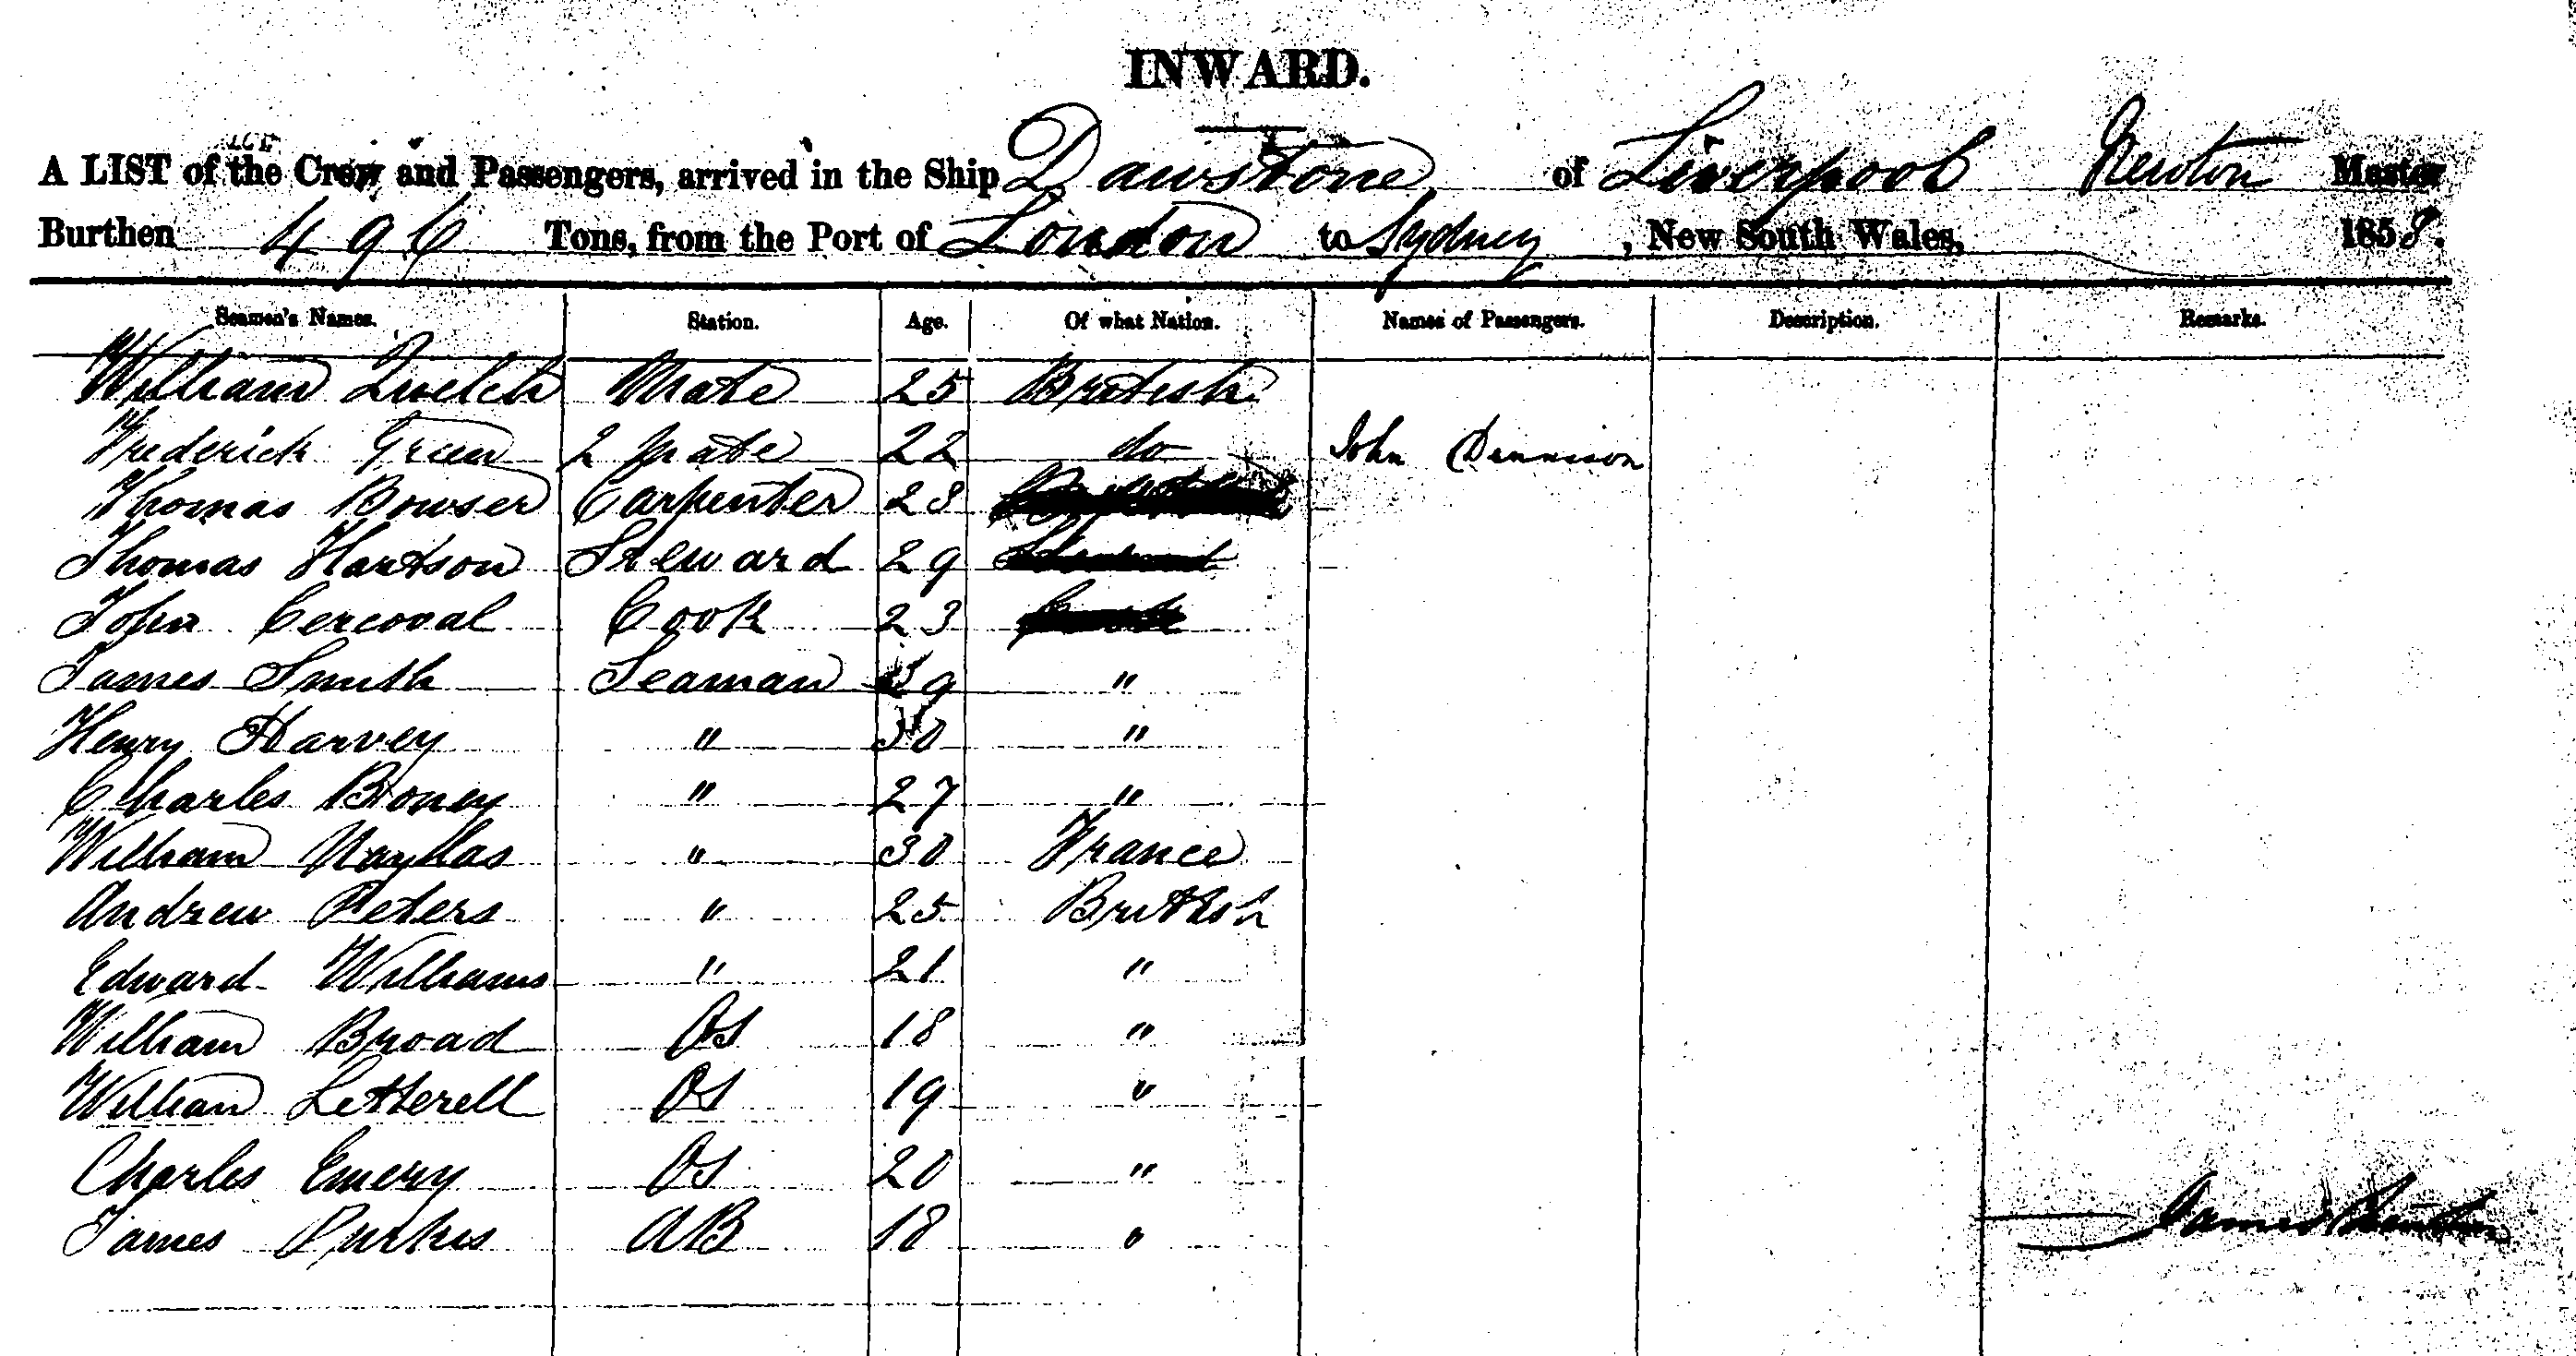 INWARD.
A LIST of the Crew and Passengers, arrived in the Ship Dawstone of Liverpool Newton Master
Burthen 496 Tons, from the Port of London to Sydney, New South Wales, 1858.
Seamen's Names. Station. Age. Of what Nation. Names of Passengers. Description. Remarks.
William Quelch Mate 25 British
Frederick Green 2 Mate 22 do John Dennison
Thomas Bowser Carpenter 28
Thomas Hartson Steward 29
John Cercoval Cook 23
James Smith Seaman 39 "
Henry Harvey " 30 "
Charles Boney " 27 "
William " 30 France
Andrew Peters " 25 British
Edward Williams " 21 "
William Broad OS 18 "
William Letherell OS 19 "
Charles Emery OS 20 "
James Purkis AB 18 "
James Newton